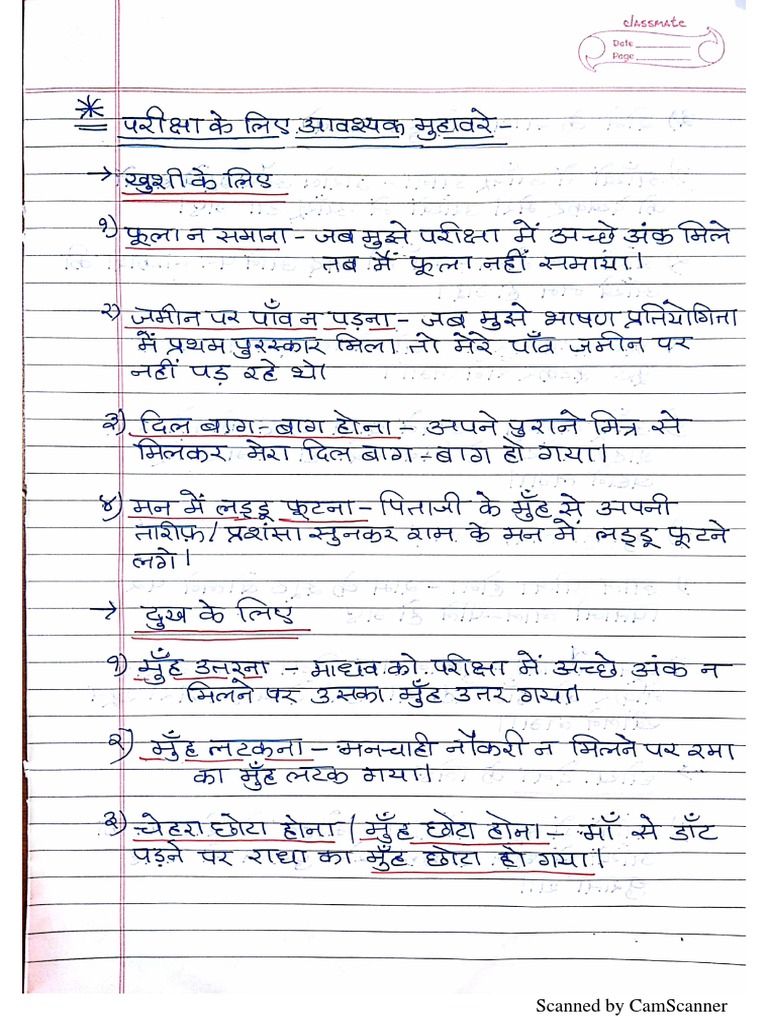 classmate
Date
Page
* परीक्षा के लिए आवश्यक मुहावरे –
→ ख़ुशी के लिए
१) फूला न समाना – जब मुझे परीक्षा में अच्छे अंक मिले
तब मैं फूला नहीं समाया।
२) जमीन पर पाँव न पड़ना – जब मुझे भाषण प्रतियोगिता
में प्रथम पुरस्कार मिला तो मेरे पाँव जमीन पर
नहीं पड़ रहे थे।
३) दिल बाग-बाग होना – अपने पुराने मित्र से
मिलकर मेरा दिल बाग-बाग हो गया।
४) मन में लड्डू फूटना – पिताजी के मुँह से अपनी
तारीफ़/प्रशंसा सुनकर राम के मन में लड्डू फूटने
लगे।
→ दुख के लिए
१) मुँह उतरना – माधव को परीक्षा में अच्छे अंक न
मिलने पर उसका मुँह उतर गया।
२) मुँह लटकना – मनचाही नौकरी न मिलने पर रमा
का मुँह लटक गया।
३) चेहरा छोटा होना / मुँह छोटा होना – माँ से डाँट
पड़ने पर राधा का मुँह छोटा हो गया।
Scanned by CamScanner